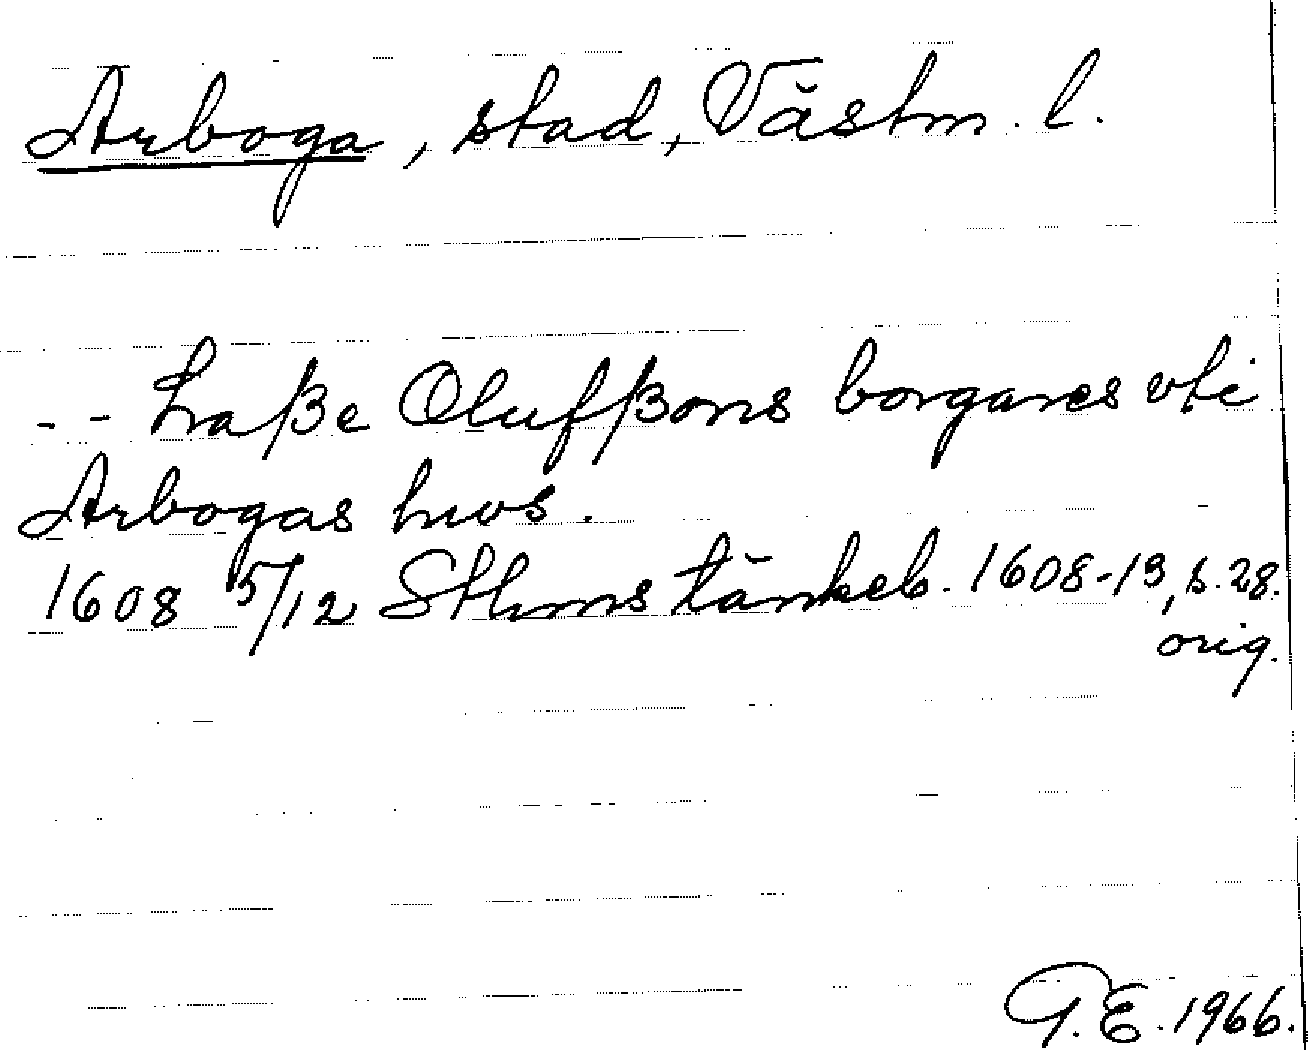 Arboga, stad, Västm. l.
-- Laße Olufßons borgares vti
Arbogas hws.
1608 5/12 Sthms tänkeb. 1608-13, s. 28.
orig.
G. E. 1966.